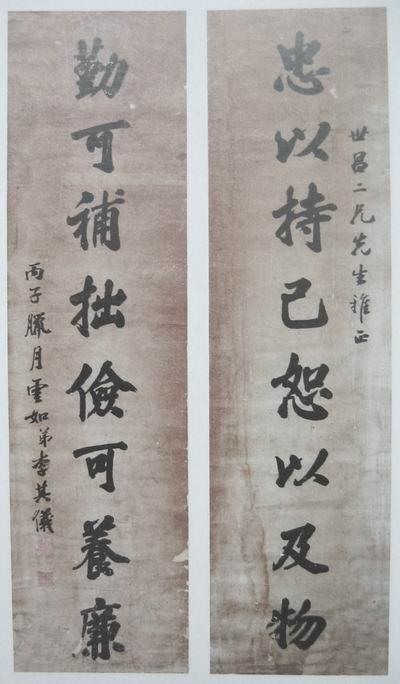 世昌二兄先生雅正
忠以持己恕以及物
勤可補拙儉可養廉
丙子臘月雲如弟李其儀